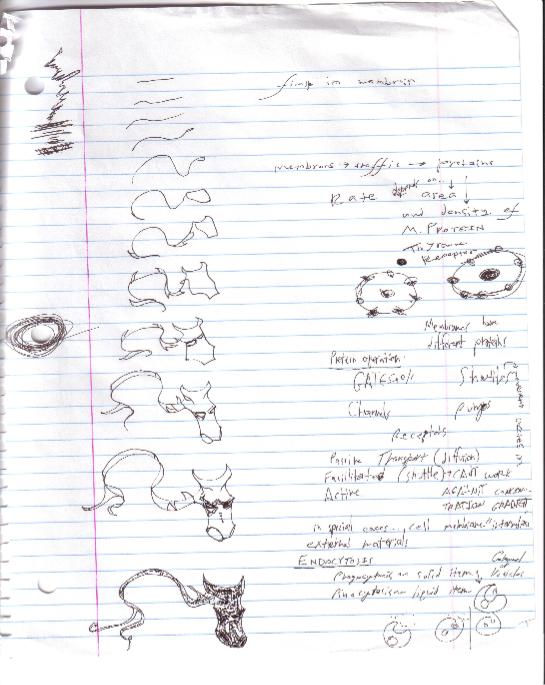 membrane → traffic → proteins
Rate depends on.. area
and density of
M. PROTEIN
Receptor
Membranes have
different proteins
Protein operation:
GATES
Shuttles
Channels
pumps
Receptors
Passive Transport (diffusion)
Facilitated (shuttle)
work
Active
AGAINST CONCEN-
TRATION GRADIENT
in special cases... cell membrane
external materials
ENDOCYTOSIS
Phagocytosis on solid items
Vesicles
Pinocytosis on liquid items